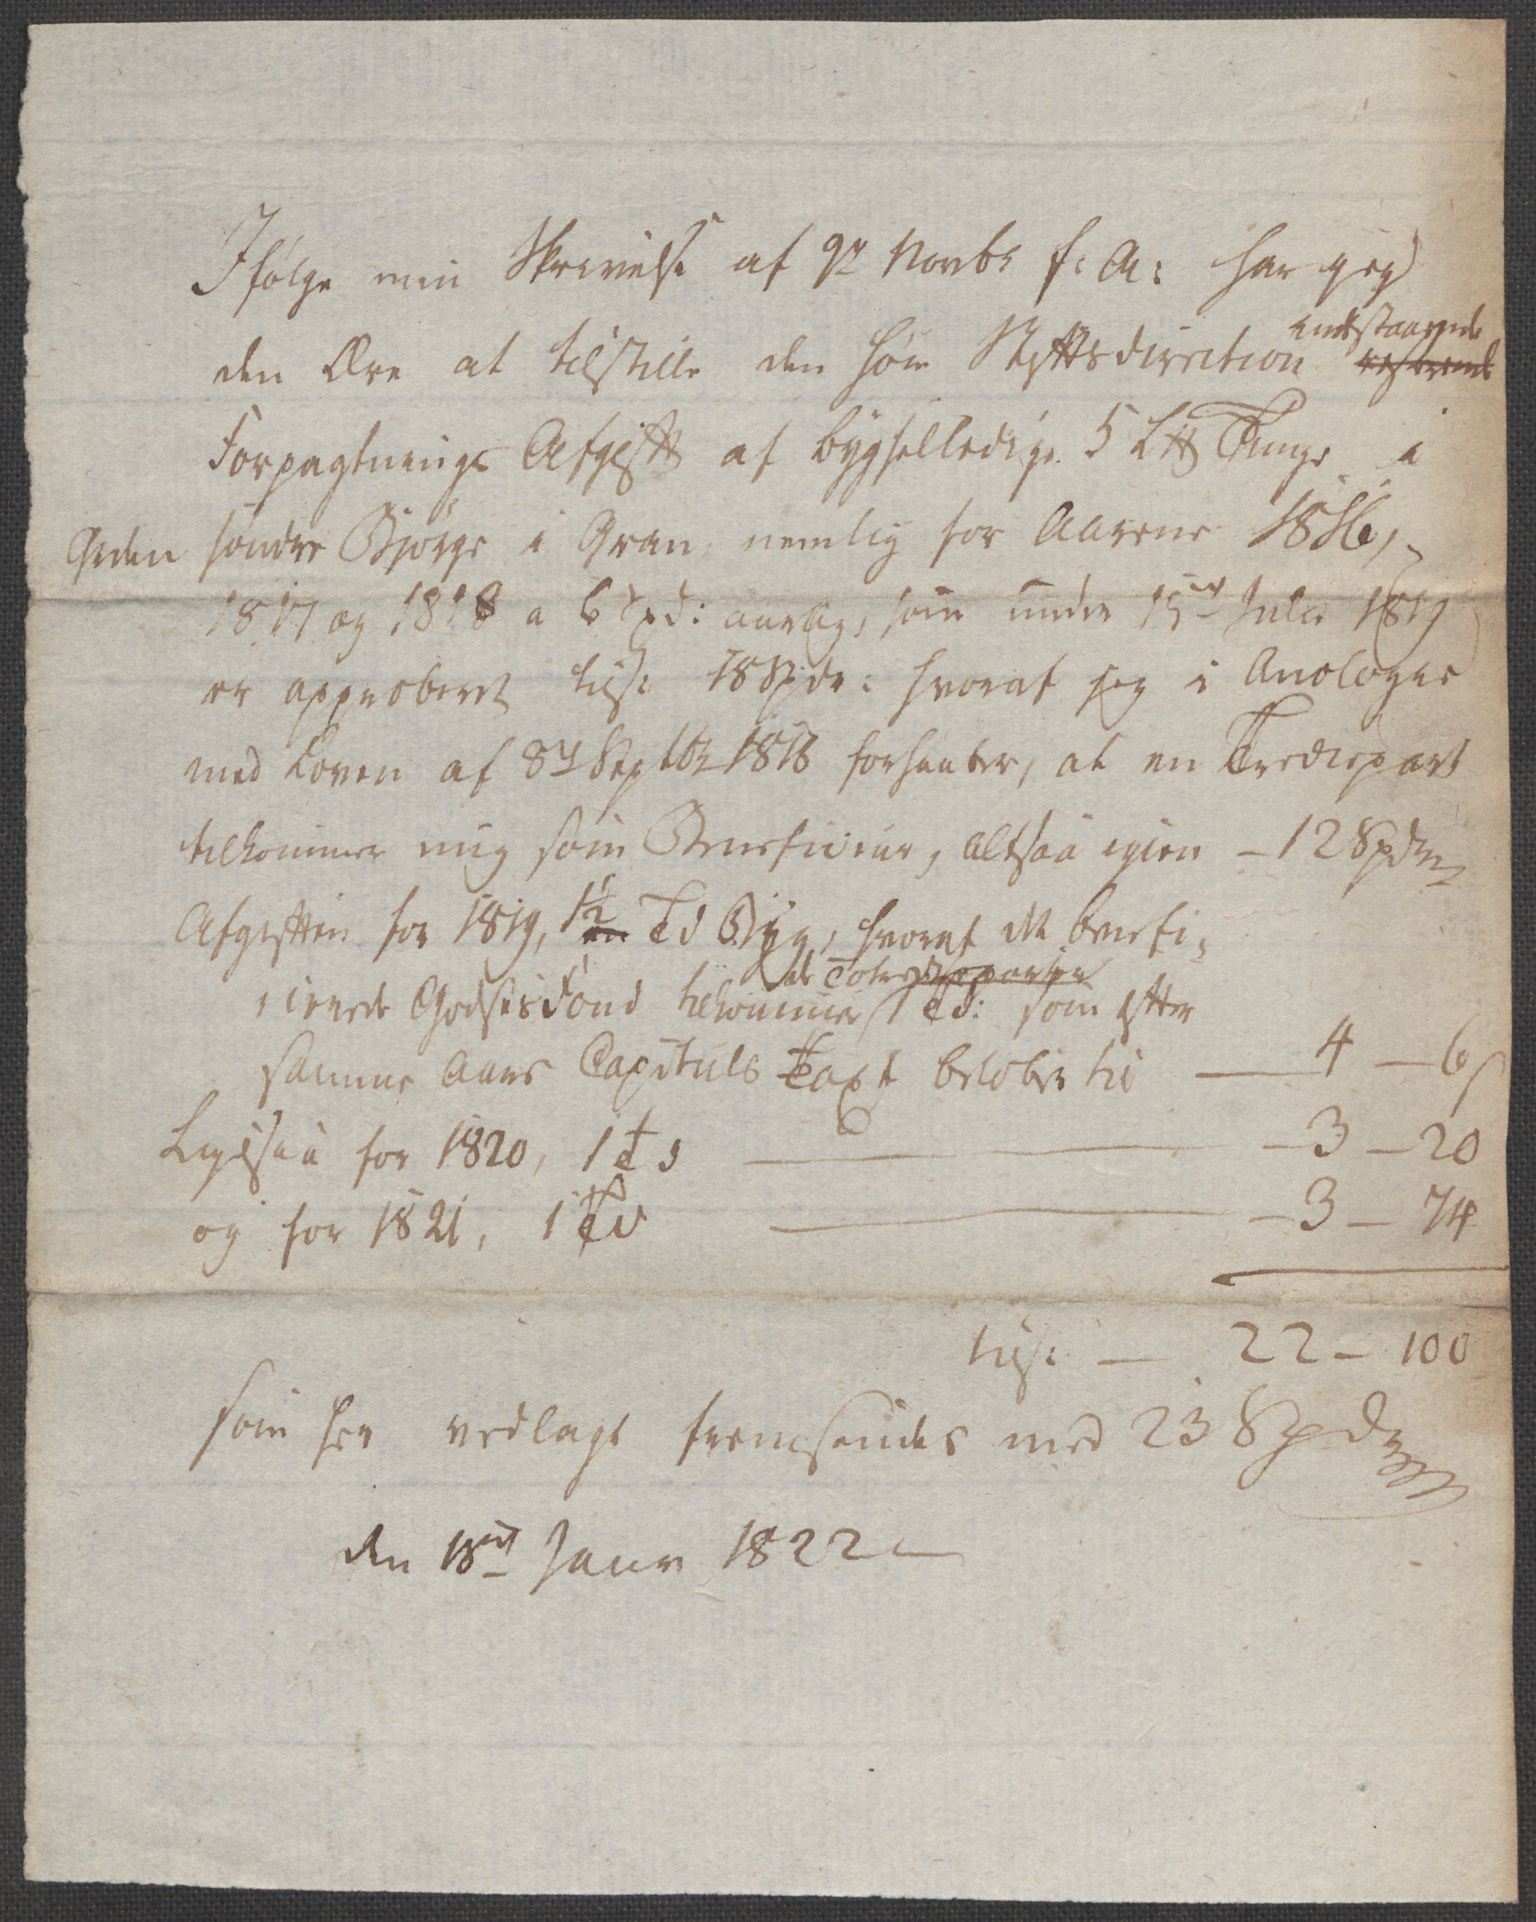 Ifølge min Skrivelse af 9de Novbr f: A: har jeg
den Ære at tilstille den høie Stiftsdirection indestaaende
Forpagtnings Afgift af bygselledige 5 L℔ Tunge i
Gden søndre Bjørge i Gran, nemlig for Aarene 1816,
1817 og 1818 a 6 Spd: aarlig, som under 15de Julii 1819
er approberet tils: 18 Spdr: hvoraf jeg i Anologie
med Loven af 8de Septbr 1818 forhaaber, at en Trediepart
tilkommer mig som Beneficiair, altsaa igien – 12 Spdr
Afgiften for 1819, 1½ Td Byg, hvoraf det benefi-
cierede Godses Fond tilkommer de to Trediepaarter 1 Td: som efter
samme Aars Capituls Taxt beløber til — 4 – 6 s
Ligesaa for 1820, 1 Td — 3 – 20
og for 1821, 1 Td — 3 – 74
tils: — 22 – 100
som her vedlagt fremsendes med 23 Spdr
den 18de Janr 1822